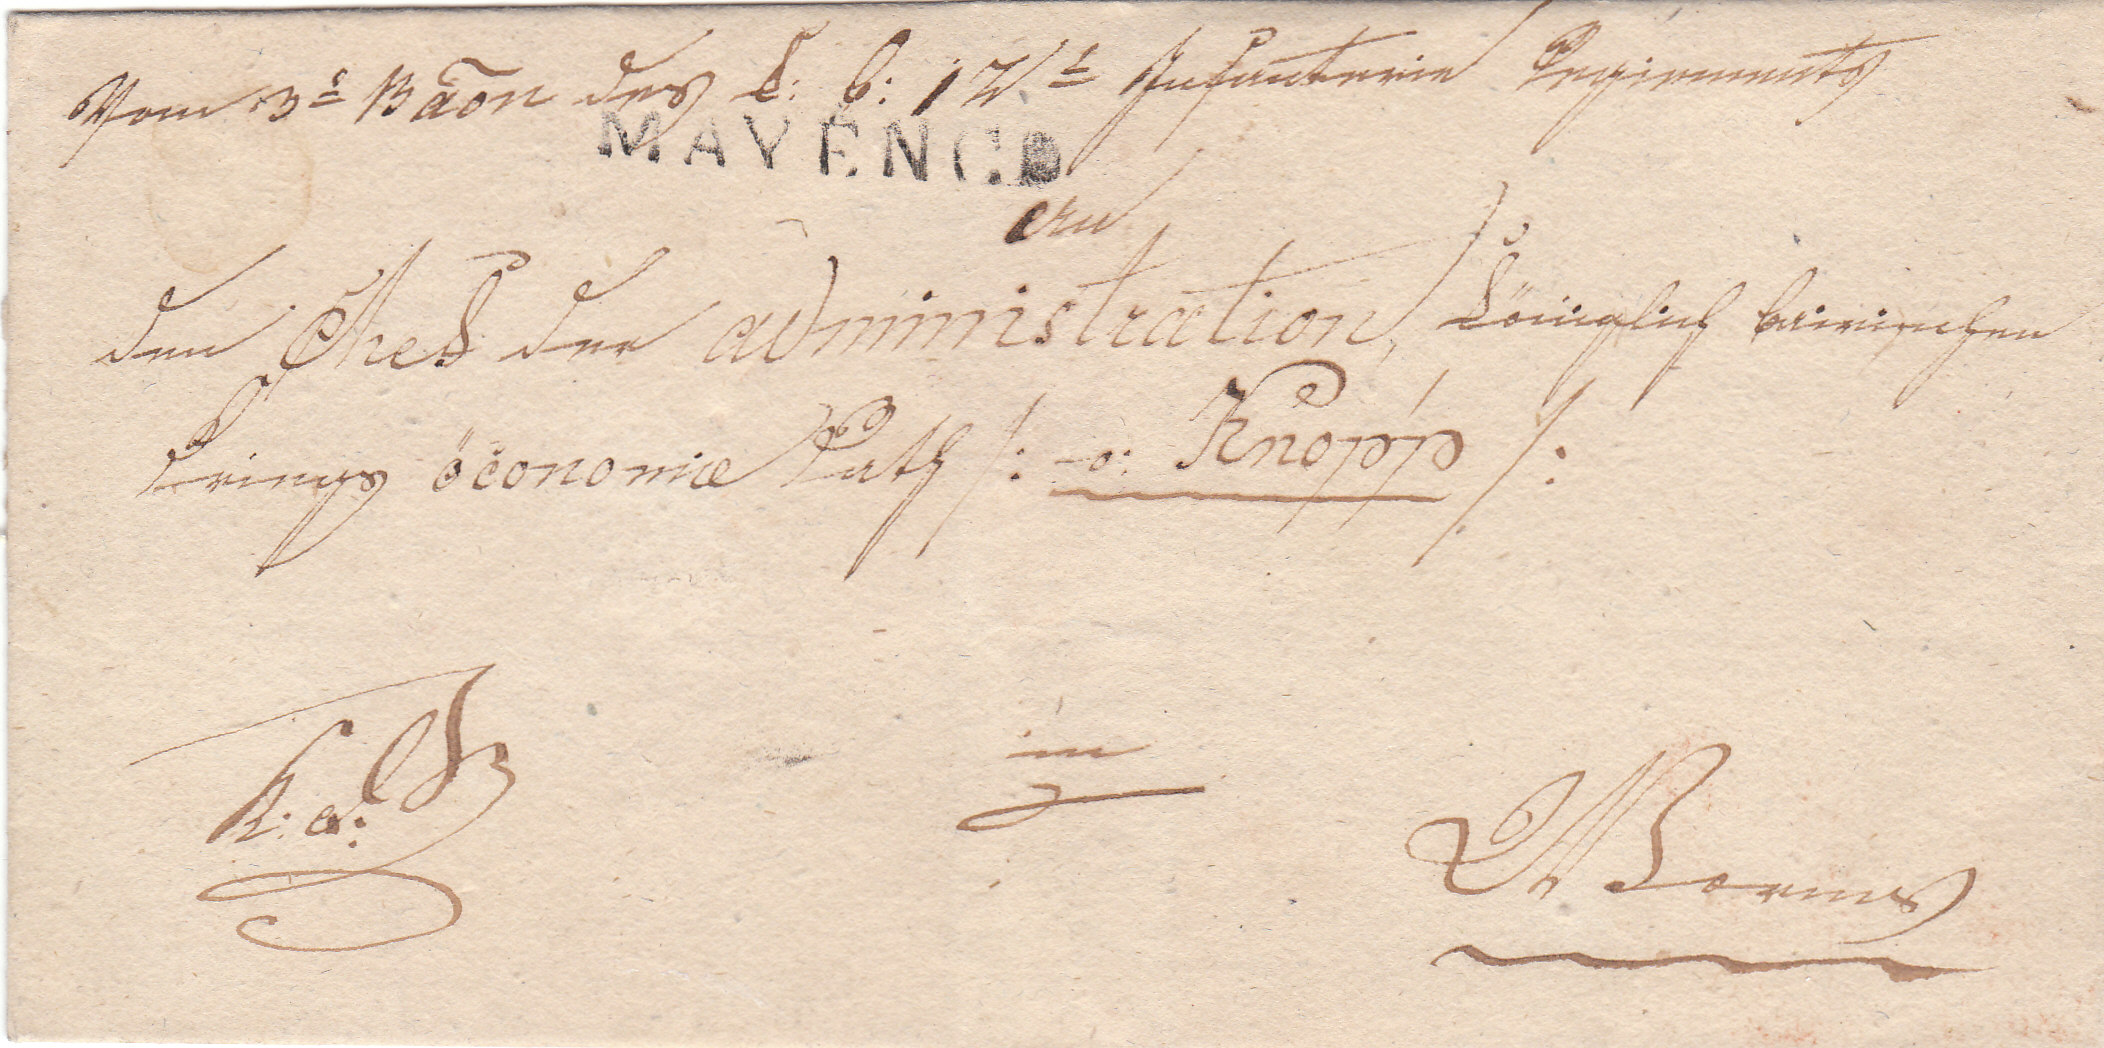 Vom 3t Baōn des k: b: 12t Infanterie Regiments
MAYENCE
an
den Chef der administration, königlich bairischen
Kriegs öconomie Rath /: v: Knopp /:
in
Worms